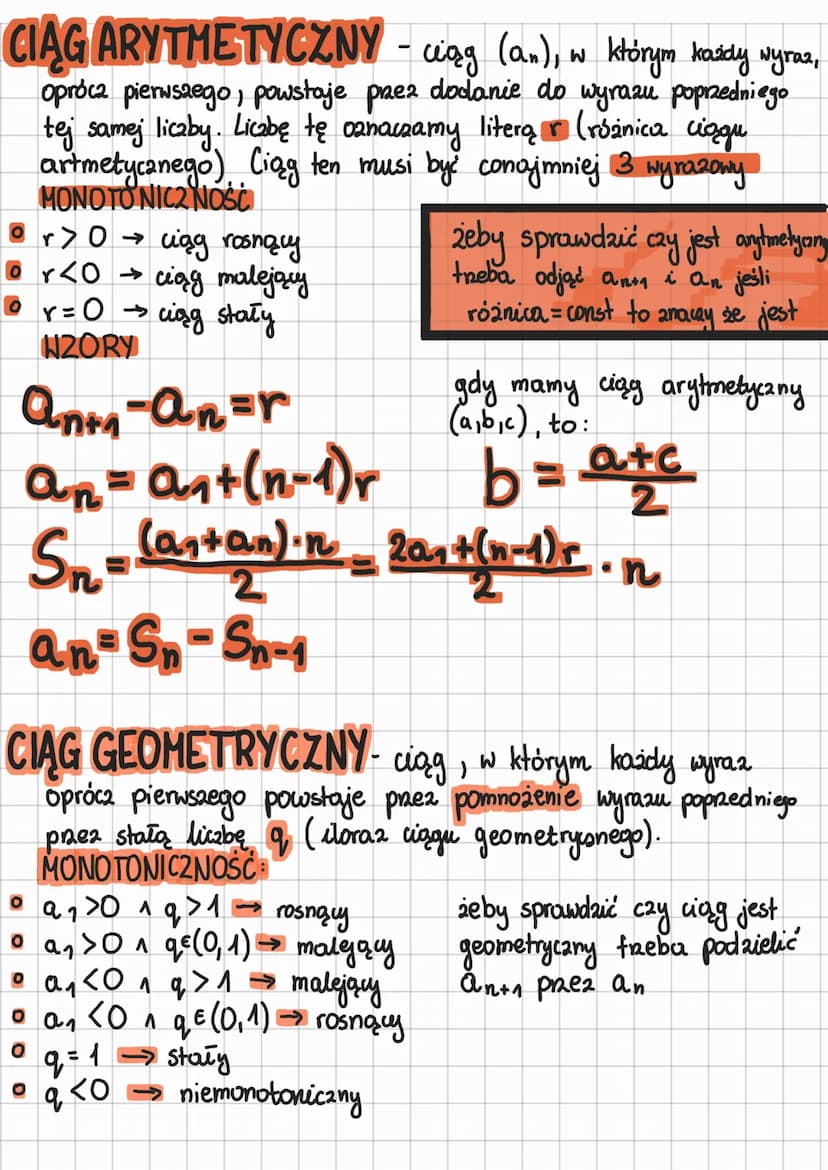 CIĄG ARYTMETYCZNY - ciąg (aₙ), w którym każdy wyraz,
oprócz pierwszego, powstaje przez dodanie do wyrazu poprzedniego
tej samej liczby. Liczbę tę oznaczamy literą r (różnica ciągu
artmetycznego). Ciąg ten musi być conajmniej 3 wyrazowy
MONOTONICZNOŚĆ
r > 0 → ciąg rosnący
r < 0 → ciąg malejący
r = 0 → ciąg stały
żeby sprawdzić czy jest arytmetyczny
trzeba odjąć aₙ₊₁ i aₙ jeśli
różnica = const to znaczy że jest
WZORY
aₙ₊₁ - aₙ = r
aₙ = a₁ + (n-1)r
Sₙ = (a₁+aₙ)·n / 2 = 2a₁+(n-1)r / 2 · n
aₙ = Sₙ - Sₙ₋₁
gdy mamy ciąg arytmetyczny
(a,b,c), to:
b = a+c / 2
CIĄG GEOMETRYCZNY - ciąg, w którym każdy wyraz
oprócz pierwszego powstaje przez pomnożenie wyrazu poprzedniego
przez stałą liczbę q (iloraz ciągu geometrycznego).
MONOTONICZNOŚĆ:
a₁>0 ∧ q>1 → rosnący
a₁>0 ∧ q∈(0,1) → malejący
a₁<0 ∧ q>1 → malejący
a₁<0 ∧ q∈(0,1) → rosnący
q=1 → stały
q<0 → niemonotoniczny
żeby sprawdzić czy ciąg jest
geometryczny trzeba podzielić
aₙ₊₁ przez aₙ